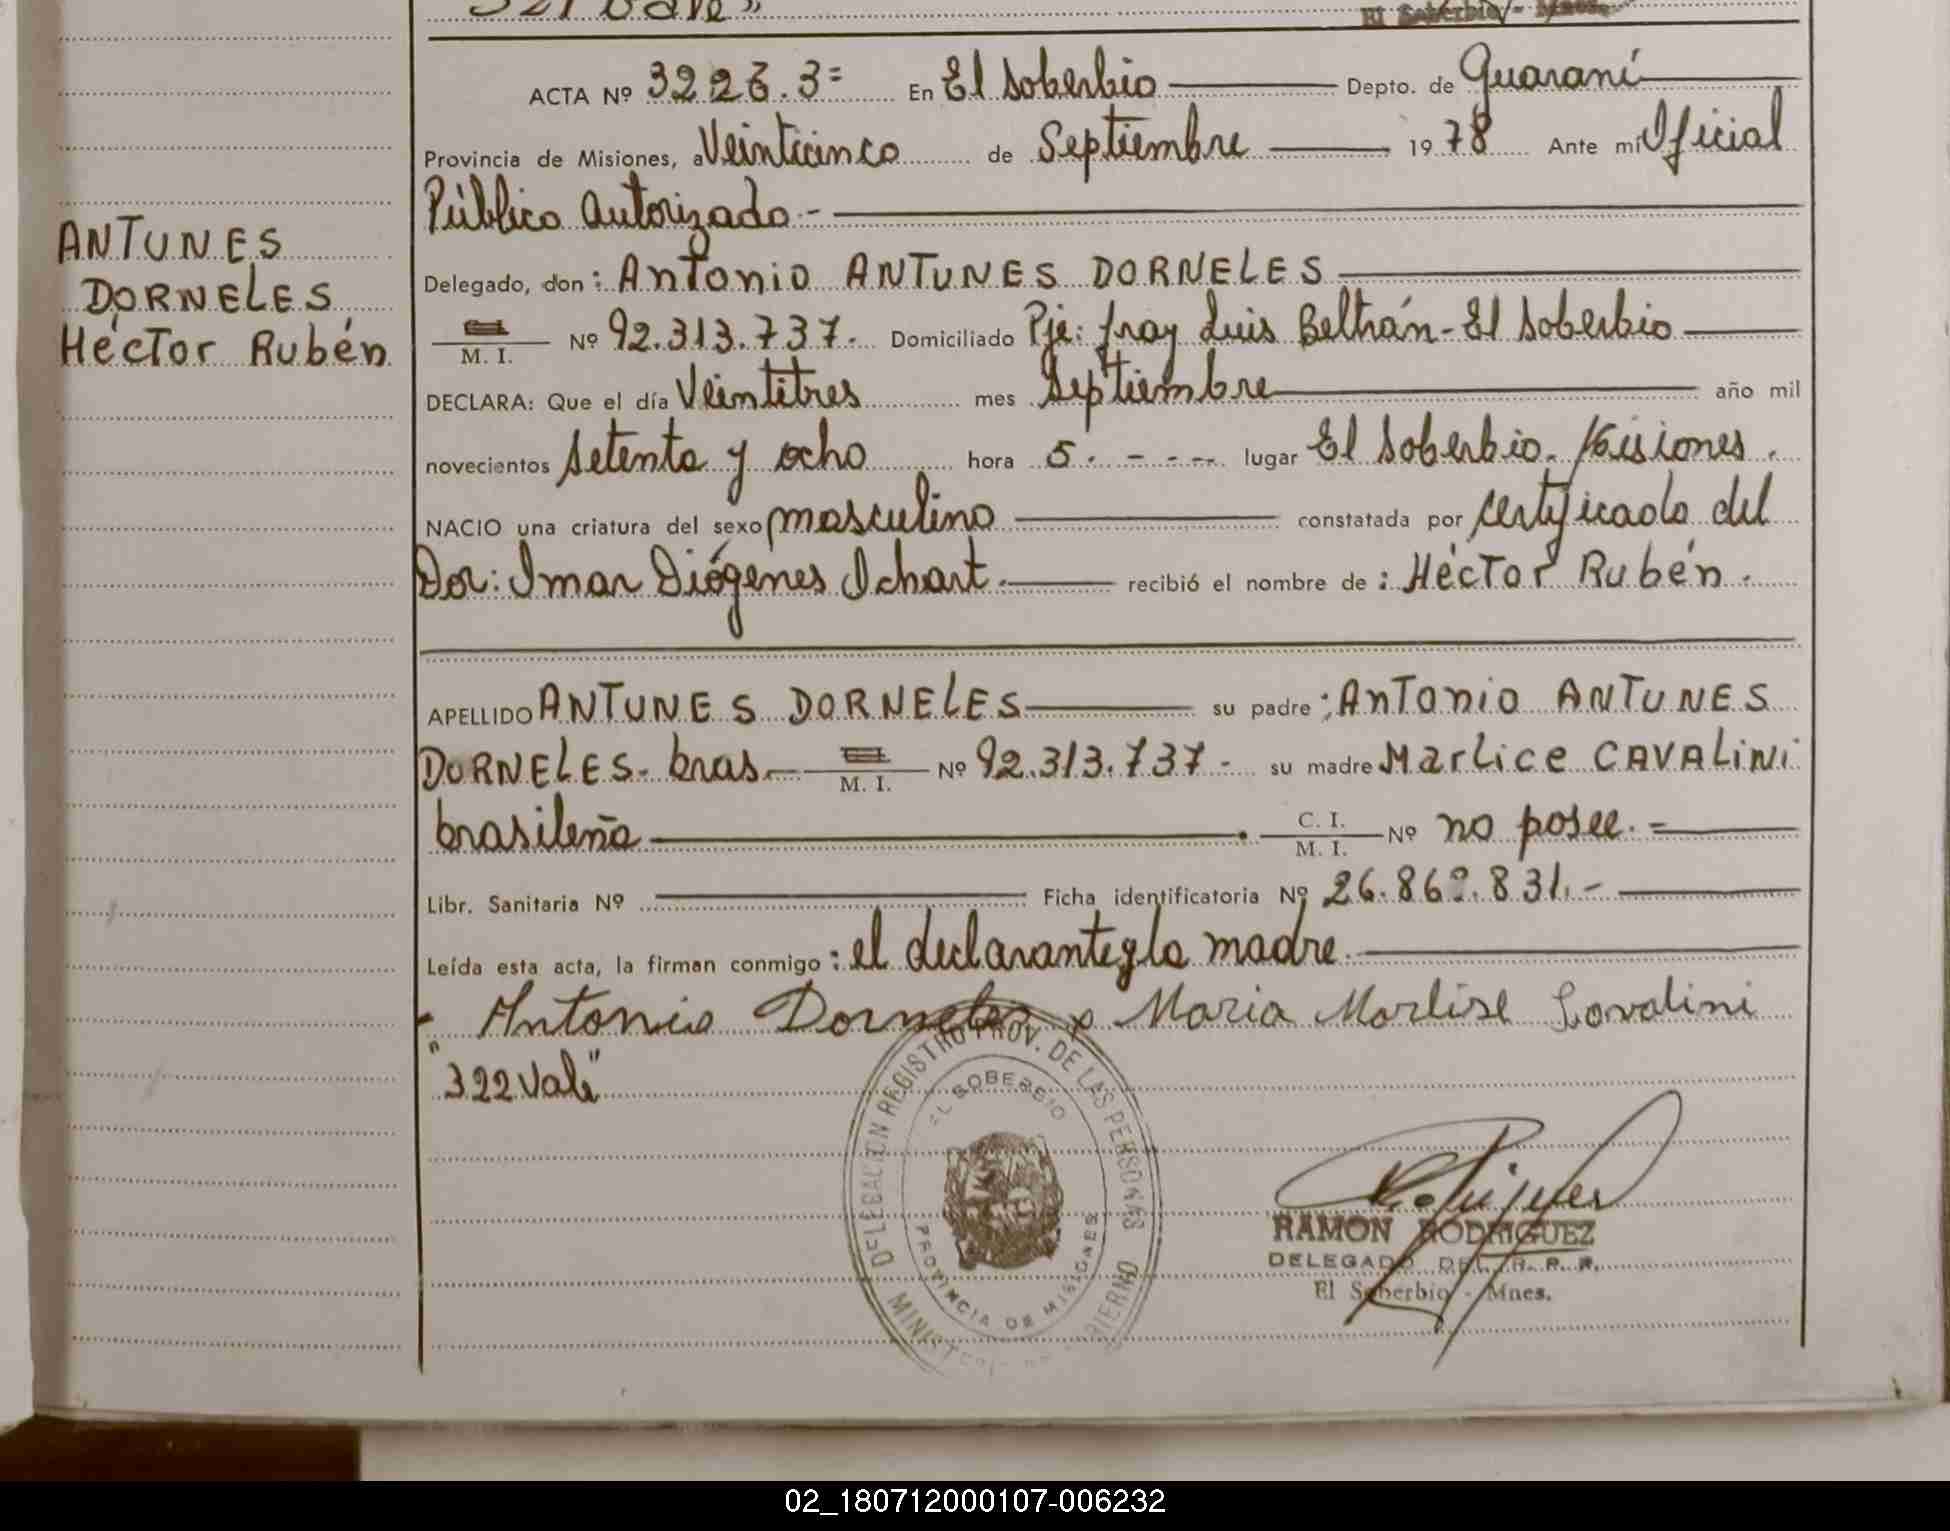 321 Vale"
El Soberbio - Mnes.
ACTA Nº 322 3.3= En El Soberbio Depto. de Guaraní
Provincia de Misiones, a Veinticinco de Septiembre 19 78 Ante mí Oficial
Público Autorizado.-
ANTUNES
DORNELES
Héctor Rubén
Delegado, don: Antonio ANTUNES DORNELES
M. I. Nº 92.313.737.- Domiciliado Pje: fray Luis Beltrán - El Soberbio
DECLARA: Que el día Veintitres mes Septiembre año mil
novecientos setenta y ocho hora 5. - - - - lugar El Soberbio. Misiones.
NACIO una criatura del sexo masculino constatada por certificado del
Dor: Imar Diógenes Ichart. recibió el nombre de: Héctor Rubén.
APELLIDO ANTUNES DORNELES su padre: Antonio ANTUNES
DORNELES- bras. M. I. Nº 92.313.737- su madre Marlice CAVALINI
brasileña C. I. M. I. Nº no posee.-
Libr. Sanitaria Nº Ficha identificatoria Nº
Leída esta acta, la firman conmigo: el declarante y la madre.
Antonio Dorneles x Maria Marlise Covalini
"322 Vale"
DELEGACION REGISTRO PROV. DE LAS PERSONAS
EL SOBERBIO
PROVINCIA DE MISIONES
RAMON RODRIGUEZ
DELEGADO DEL R. P. P.
El Soberbio - Mnes.
02_180712000107-006232